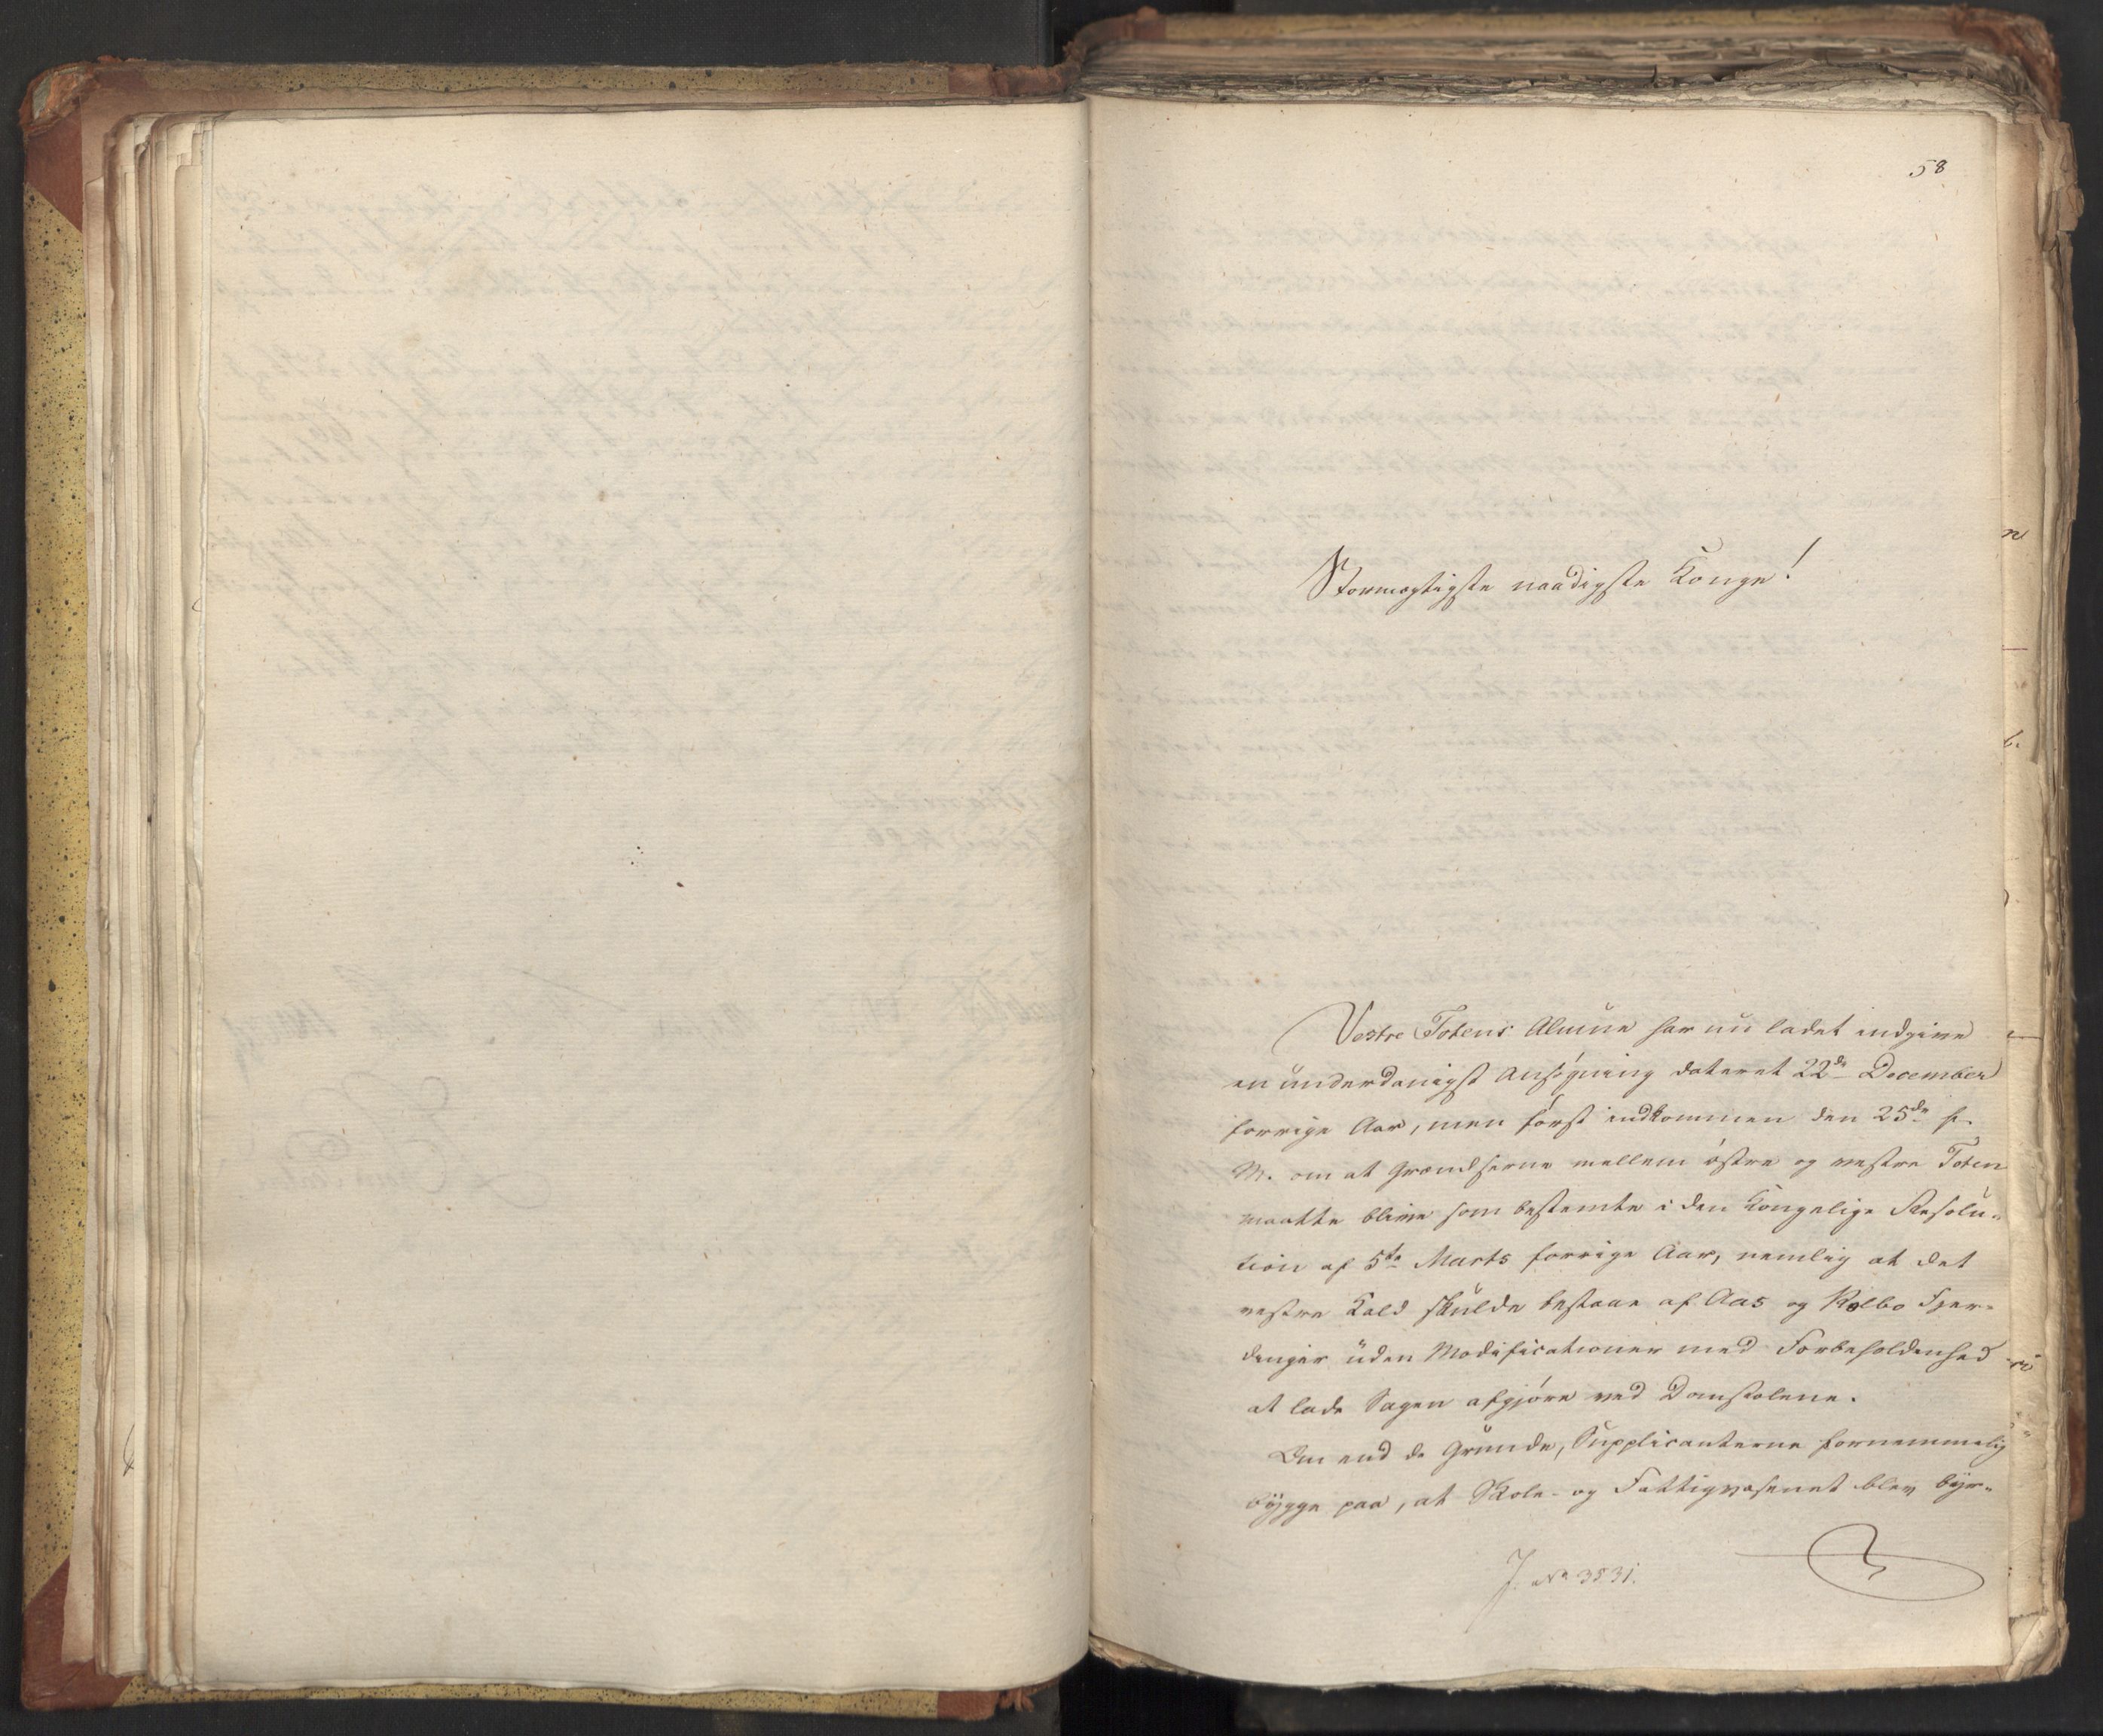 58
Stormægtigste naadigste Konge!
Vestre Totens Almue har nu ladet indgive
en underdanigst Ansøgning dateret 22de December
forrige Aar, men først indkommen den 25de f.
M. om at Grændserne mellem østre og vestre Toten
maatte blive som bestemte i den Kongelige Resolu-
tion af 5te Marts forrige Aar, nemlig at det
vestre Kald skulde bestaae af Aas og Kolbo Fjer-
dinger uden Modificationer med Forbeholdenhed
at lade Sagen afgjøre ved Domstolene.
Om end de Grunde, Supplicanterne fornemmelig
bygge paa, at Skole- og Fattigvæsenet blev byr-
J. No 3531.